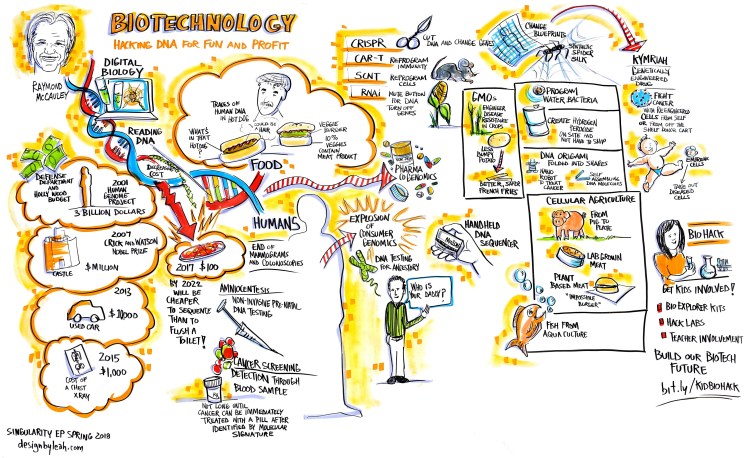 BIOTECHNOLOGY
HACKING DNA FOR FUN AND PROFIT
RAYMOND
McCAULEY
DIGITAL
BIOLOGY
READING DNA
DECREASING
COST
DEFENSE
DEPARTMENT
AND
HOLLYWOOD
BUDGET
2001
HUMAN
GENOME
PROJECT
3 BILLION DOLLARS
2007
CRICK AND WATSON
NOBEL PRIZE
CASTLE
$ MILLION
2013
USED CAR
2015
$1,000
COST OF
A CHEST
XRAY
SINGULARITY EP SPRING 2018
designbyleah.com
TRACES OF
HUMAN DNA
IN HOT DOG
COULD BE
A HAIR
WHAT'S
IN THAT
HOTDOG?
VEGGIE
BURGER
10%
VEGGIES
CONTAIN
MEAT PRODUCT
FOOD
HUMANS
2017 $100
BY 2022
WILL BE
CHEAPER
TO SEQUENCE
THAN TO
FLUSH A
TOILET!
END OF
MAMMOGRAMS
AND COLONOSCOPIES
AMNIOCENTESIS
NON-INVASIVE PRE-NATAL
DNA TESTING
CANCER SCREENING
DETECTION THROUGH
BLOOD SAMPLE
NOT LONG UNTIL
CANCER CAN BE IMMEDIATELY
TREATED WITH A PILL AFTER
IDENTIFIED BY MOLECULAR
SIGNATURE
CRISPR
CUT
DNA AND CHANGE GENES
CAR-T
REPROGRAM
IMMUNITY
SCNT
REPROGRAM
CELLS
RNAi
MUTE BUTTON
FOR DNA
TURN OFF
GENES
PHARMA
CO GENOMICS
EXPLOSION
OF
CONSUMER
GENOMICS
DNA TESTING
FOR ANCESTRY
WHO IS
OUR DADDY?
HANDHELD
DNA
SEQUENCER
GMOs
ENGINEER
DISEASE
RESISTANCE
IN CROPS
LESS
BUMPY
POTATO
BETTER, SAFER
FRENCH FRIES
CHANGE
BLUEPRINTS
SYNTHETIC
SPIDER
SILK
PROGRAM
WATER, BACTERIA
CREATE HYDROGEN
PEROXIDE
ON SITE AND
NOT HAVE TO SHIP
DNA ORIGAMI
FOLDED INTO SHAPES
NANO
ROBOT
TO TREAT
CANCER
SELF
ASSEMBLING
DNA MOLECULES
CELLULAR AGRICULTURE
FROM
PIG TO
PLATE
LAB GROWN
MEAT
PLANT
BASED MEAT
"IMPOSSIBLE
BURGER"
FISH FROM
AQUA CULTURE
KYMRIAH
GENETICALLY
ENGINEERED
DRUG
FIGHT
CANCER
WITH RE-ENGINEERED
CELLS FROM SELF
OR FROM OFF THE
SHELF DONOR CART
EMBRYONIC
CELLS
TAKE OUT
DISEASED
CELLS
BIO HACK
GET KIDS INVOLVED!
BIO EXPLORER KITS
HACK LABS
TEACHER INVOLVEMENT
BUILD OUR BIOTECH
FUTURE
bit.ly/KIDBIOHACK